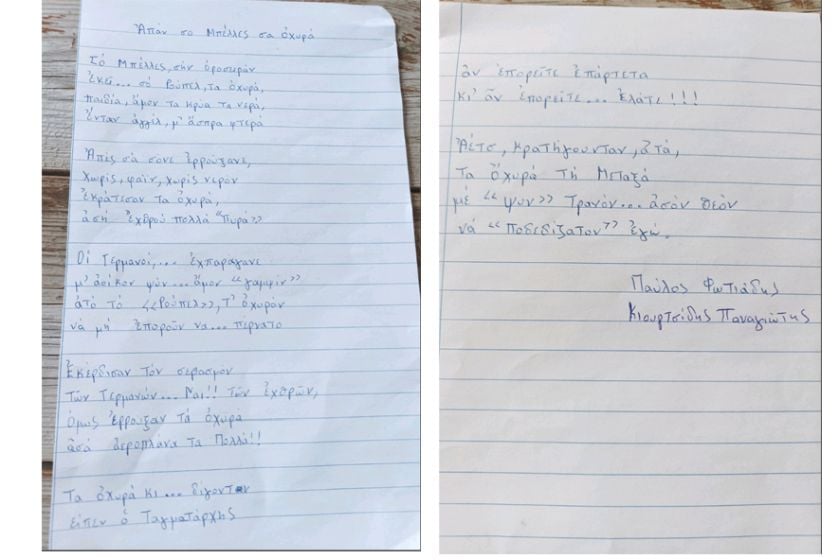 Ἀπάν σο Μπέλλες σα ὀχυρά
Σό Μπέλλες, σήν ὀροσειράν
ἐκεί... σό Ρούπελ, τα ὀχυρά,
παιδία, ἅμον τα κρύα τα νερά,
ἔνταν ἀγγέλ, μ' ἄσπρα φτερά
Ἀπές σά σόνε ἐρρούξανε,
χωρίς, φαΐν, χωρίς νερόν
ἐκράτεσαν τα ὀχυρά,
ἀσή ἐχθρού πολλά "Πυρά"
Οἱ Γερμανοί,... ἐχπαράγανε
μ' ἀοίκον ψύν... ἅμον «γαμψίν»
ἀτό τό «Ρούπελ», τ' ὀχυρόν
νά μή ἐπορούν να... πέρνατο
Ἐκέρδισαν τόν σεβασμόν
τῶν Γερμανῶν... Ναι!! τῶν ἐχθρῶν,
ὅμως ἔρρουξαν τά ὀχυρά
ἀσά ἀεροπλάνα τα Πολλά!!
Τα ὀχυρά κι... δίγονταν
εἶπεν ὁ Ταγματάρχης
ἄν ἐπορεῖτε ἐπάρτετα
κι' ἄν ἐπορεῖτε... ἐλᾶτε!!!
Ἀέτσ, κρατήγουνταν, ἀτά,
τα ὀχυρά τή Μεταξά
μέ «ψύν» τρανόν... ἀσόν θεόν
νά «ποδεδίζατον» ἐγώ.
Παύλος Φωτιάδης
Κιουρτσίδης Παναγιώτης